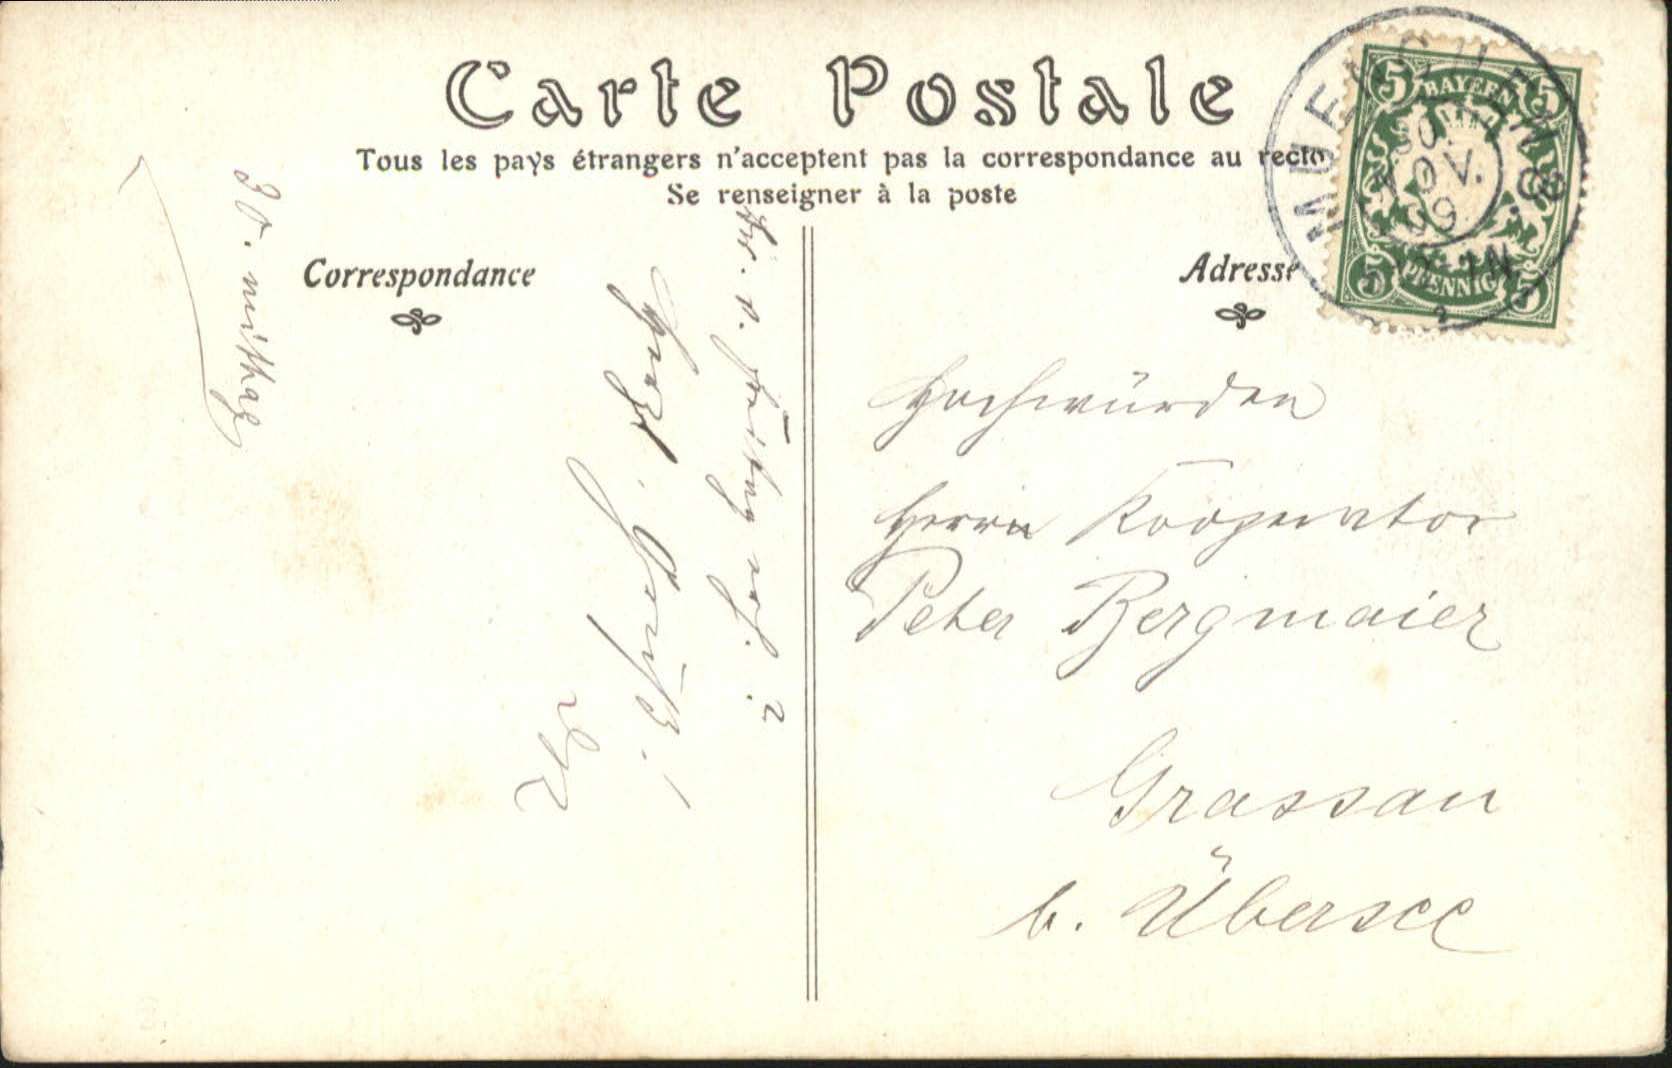 Carte Postale
Tous les pays étrangers n'acceptent pas la correspondance au recto
Se renseigner à la poste
Correspondance
Adresse
MUENCHEN
30.
NOV.
09
BAYERN
5 5
PFENNIG
5 5
30. mittag
Herzl. Gruß!
Hochwürden
Herrn Kooperator
Peter Bergmaier
Grassau
b. Übersee